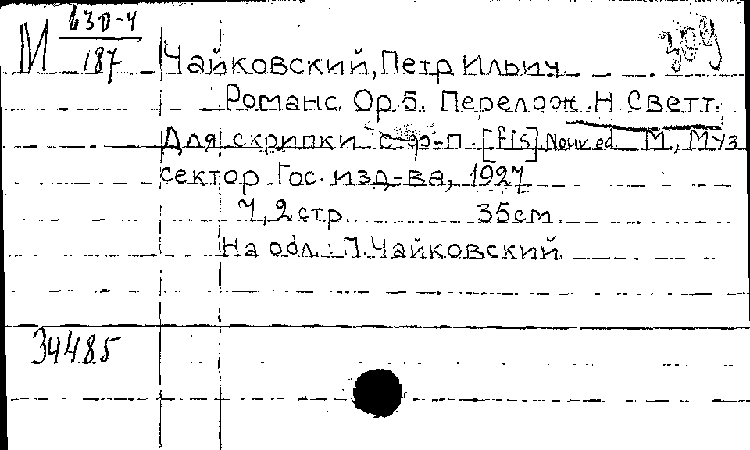 М 630-4
187
309
Чайковский, Петр Ильич
Романс. Op. 5. Перелож. Н. Светт.
Для скрипки с ф-п. [fis] Nouv. ed. М., Муз
сектор Гос. изд-ва, 1927
7, 2 стр. 35 см.
На обл.: П. Чайковский
34485